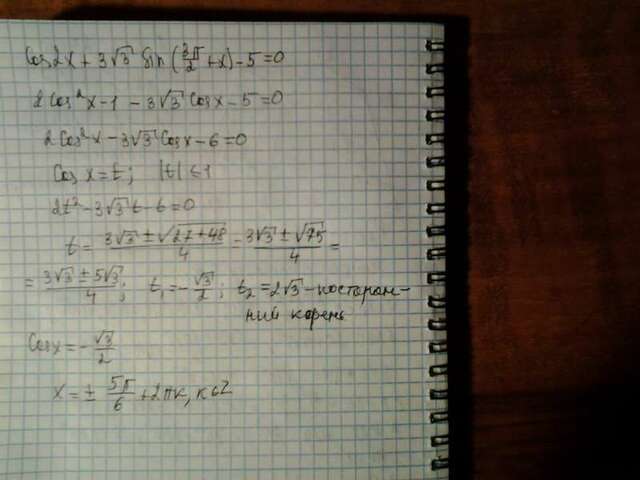 cos2x + 3√3 sin(3π/2 + x) - 5 = 0
2cos²x - 1 - 3√3 cosx - 5 = 0
2cos²x - 3√3 cosx - 6 = 0
cos x = t; |t| ≤ 1
2t² - 3√3 t - 6 = 0
t = (3√3 ± √(27+48))/4 = (3√3 ± √75)/4 =
= (3√3 ± 5√3)/4; t₁ = -√3/2; t₂ = 2√3 - посторон-
ний корень
cosx = -√3/2
x = ± 5π/6 + 2πк, к∈Z